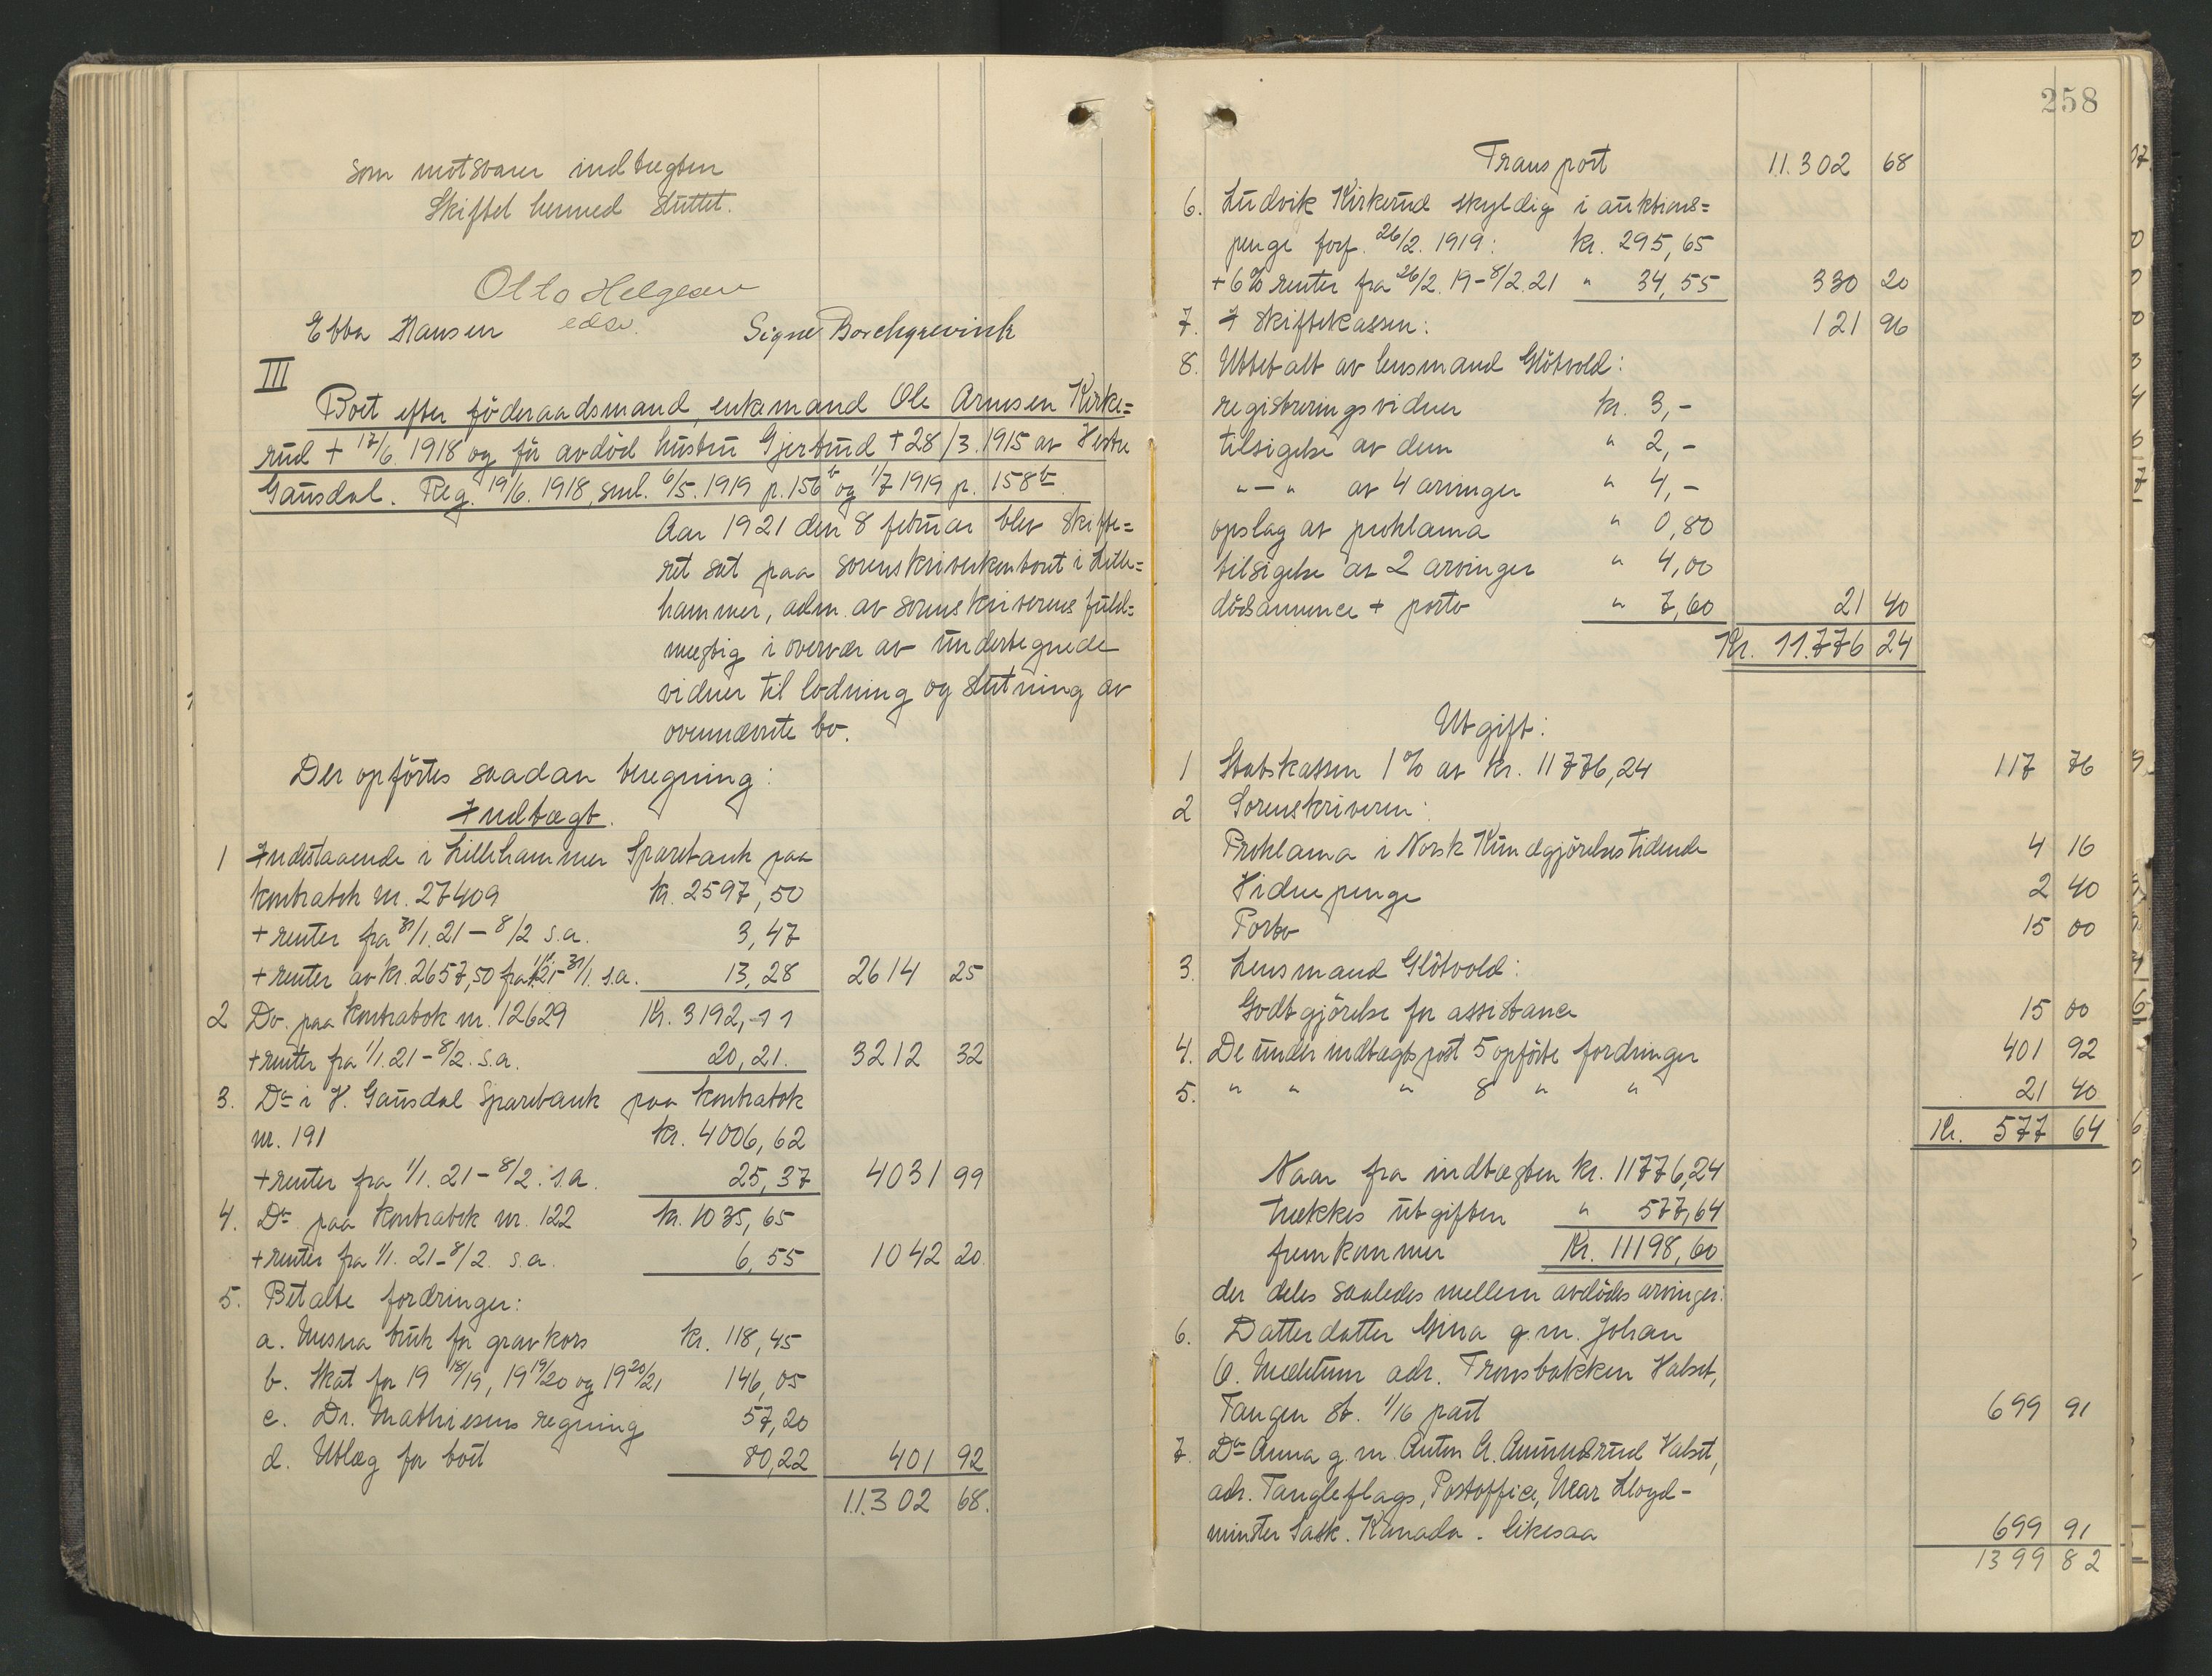 som motsvarer indtægten
Skiftet hermed sluttet.
Otto Helgesen
edsv.
Ebba Hansen Signe Borchgrevink
III
Boet efter föderaadsmand, enkemand Ole Arnesen Kirke=
rud + 17/6. 1918 og før avdöd hustru Gjertrud + 28/3. 1915 av Vestre
Gausdal. Reg. 19/6. 1918, sml. 6/5. 1919 p. 156 b og 1/7 1919 p. 158 b.
Aar 1921 den 8 februar blev skifte=
ret sat paa sorenskriverkontoret i Lille=
hammer, adm. av sorenskriverens fuld=
mægtig i overvær av undertegnede
vidner til lodning og slutning av
ovennævnte bo.
Der opförtes saadan beregning:
Indtægt.
1 Indestaaende i Lillehammer Sparebank paa
kontrabok nr. 27409 kr. 2597,50
+ renter fra 31/1. 21 - 8/2 s.a. 3,47
+ renter av kr. 2657,50 fra 1/1. 21 - 31/1. s.a. 13,28 2614 25
2 Do. paa kontrabok nr. 12629 Kr. 3192,11
+ renter fra 1/1. 21 - 8/2. s.a. 20,21. 3212 32
3. Do i V. Gausdal Sparebank paa kontrabok
nr. 191 kr. 4006,62
+ renter fra 1/1. 21 - 8/2. s.a. 25,37 4031 99
4. Do paa kontrabok nr. 122 kr. 1035,65
+ renter fra 1/1. 21 - 8/2. s.a. 6,55 1042 20
5. Betalte fordringer:
a. Mesna bruk for gravkors kr. 118,45
b. Skat for 19 18/19, 19 19/20 og 19 20/21 146,05
c. Dr. Mathiesens regning 57,20
d. Utlæg for boet 80,22 401 92
11.302 68.
258
Transport 11.302 68
6. Ludvik Kirkerud skyldig i auktions=
penge forf. 26/2. 1919: kr. 295,65
+ 6% renter fra 26/2. 19 - 8/2. 21 " 34,55 330 20
7. I skiftekassen: 121 96
8. Utbetalt av lensmand Glötvold:
registreringsvidner kr. 3,-
tilsigelse av dem " 2,-
" — " av 4 arvinger " 4,-
opslag av proklama " 0,80
tilsigelse av 2 arvinger " 4,00
dödsannonce + porto " 7,60 21 40
Kr. 11.776 24
Utgift:
1 Statskassen 1% av kr. 11776,24 117 76
2 Sorenskriveren:
Proklama i Norsk Kundgjörelsestidende 4 16
Vidnepenge 2 40
Porto 15 00
3. Lensmand Glötvold:
Godtgjörelse for assistance 15 00
4. De under indtægtspost 5 opförte fordringer 401 92
5. " " " 8 " " 21 40
Kr. 577 64
Naar fra indtægten kr. 11776,24
trækkes utgiften " 577,64
fremkommer Kr. 11198,60
der deles saaledes mellem avdödes arvinger:
6. Datterdatter Gina g.m. Johan
O. Mæhtum adr. Tronsbakken Valset,
Tangen st. 1/16 part 699 91
7. Do Anna g.m. Anton A. Amundsrud Valset,
adr. Tangleflags, Postoffice, Near Lloyd-
minster Sask. Kanada. likesaa 699 91
1399 82